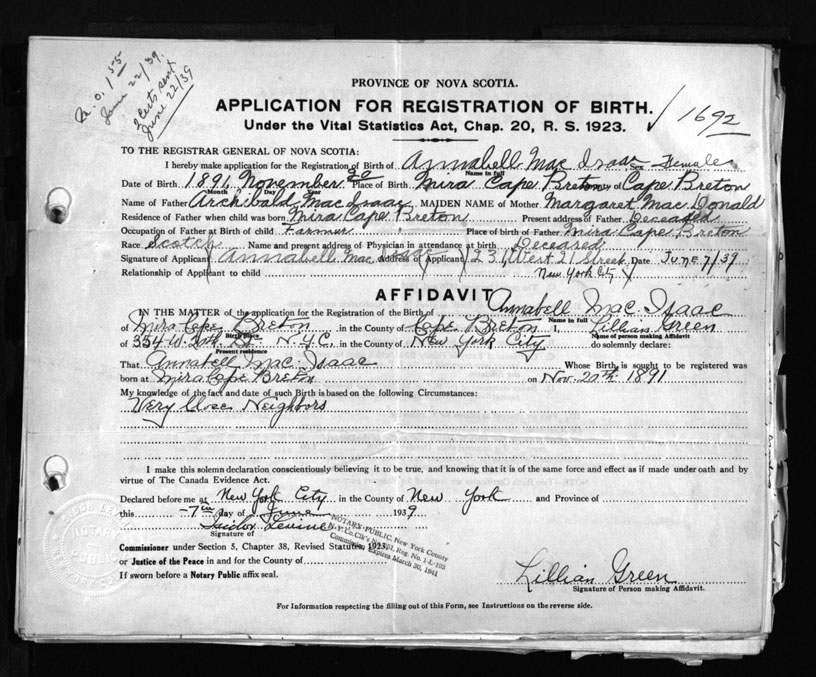 M.O. 1 55
June 22/39.
2 certs sent
June 22/39
PROVINCE OF NOVA SCOTIA.
APPLICATION FOR REGISTRATION OF BIRTH.
1692
Under the Vital Statistics Act, Chap. 20, R. S. 1923.
TO THE REGISTRAR GENERAL OF NOVA SCOTIA:
I hereby make application for the Registration of Birth of Annabell Mac Isaac Sex Female
Name in full
Date of Birth 1891 November 20 Place of Birth Mira Cape Breton County of Cape Breton
Month Day Year
Name of Father Archibald Mac Isaac MAIDEN NAME of Mother Margaret Mac Donald
Residence of Father when child was born Mira Cape Breton Present address of Father Deceased
Occupation of Father at Birth of child Farmer Place of birth of Father Mira Cape Breton
Race Scotch Name and present address of Physician in attendance at birth Deceased
Signature of Applicant Annabell Mac Isaac Address of Applicant 231 West 21 Street Date June 7/39
Relationship of Applicant to child New York City
AFFIDAVIT
IN THE MATTER of the application for the Registration of the Birth of Annabell Mac Isaac
Name in full
of Mira Cape Breton in the County of Cape Breton I, Lillian Green
Birth Place
Name of person making Affidavit
of 334 W. 20th St. N.Y.C. in the County of New York City do solemnly declare:
Present residence
That Annabell Mac Isaac Whose Birth is sought to be registered was
born at Mira Cape Breton on Nov. 20th 1891
My knowledge of the fact and date of such Birth is based on the following Circumstances:
Very Close Neighbors
I make this solemn declaration conscientiously believing it to be true, and knowing that it is of the same force and effect as if made under oath and by
virtue of The Canada Evidence Act.
Declared before me at New York City in the County of New York and Province of
this 7th day of June 1939
Isidor Levine
Signature of
NOTARY PUBLIC, New York County
N. Y. Co. Clk's No. 151, Reg. No. 1-L-103
Commission Expires March 30, 1941
Commissioner under Section 5, Chapter 38, Revised Statutes, 1923.
or Justice of the Peace in and for the County of
If sworn before a Notary Public affix seal.
Lillian Green
Signature of Person making Affidavit.
For Information respecting the filling out of this Form, see Instructions on the reverse side.